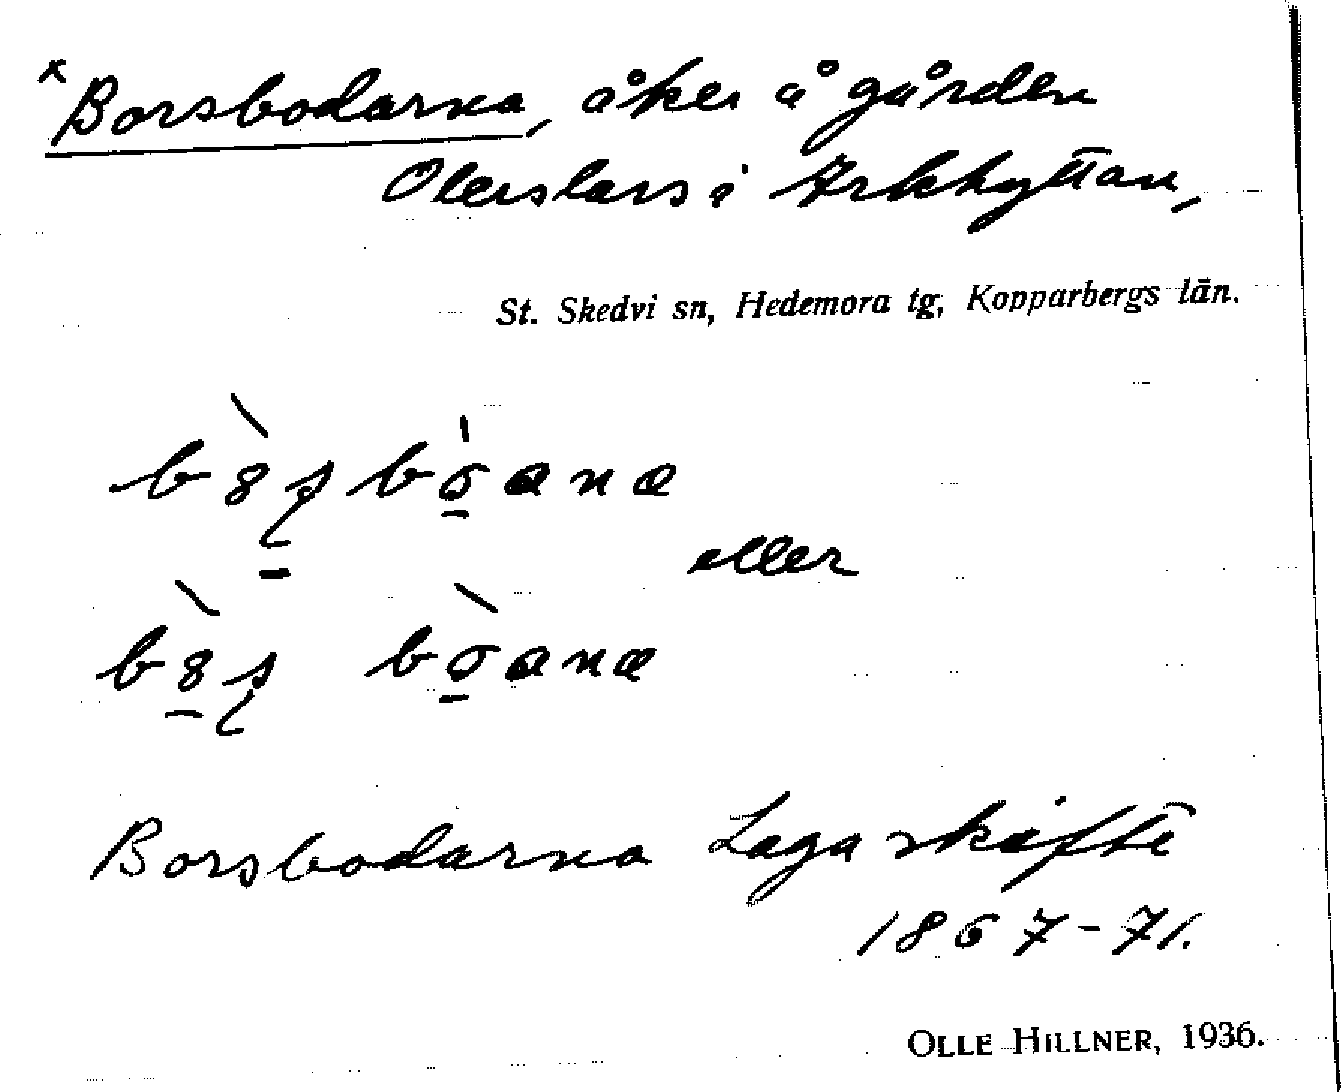 x Borsbodarna, åker å gården
Olerslars i Arkhyttan,
St. Skedvi sn, Hedemora tg, Kopparbergs län.
eller
Borsbodarna Laga skifte
1867-71.
OLLE HILLNER, 1936.